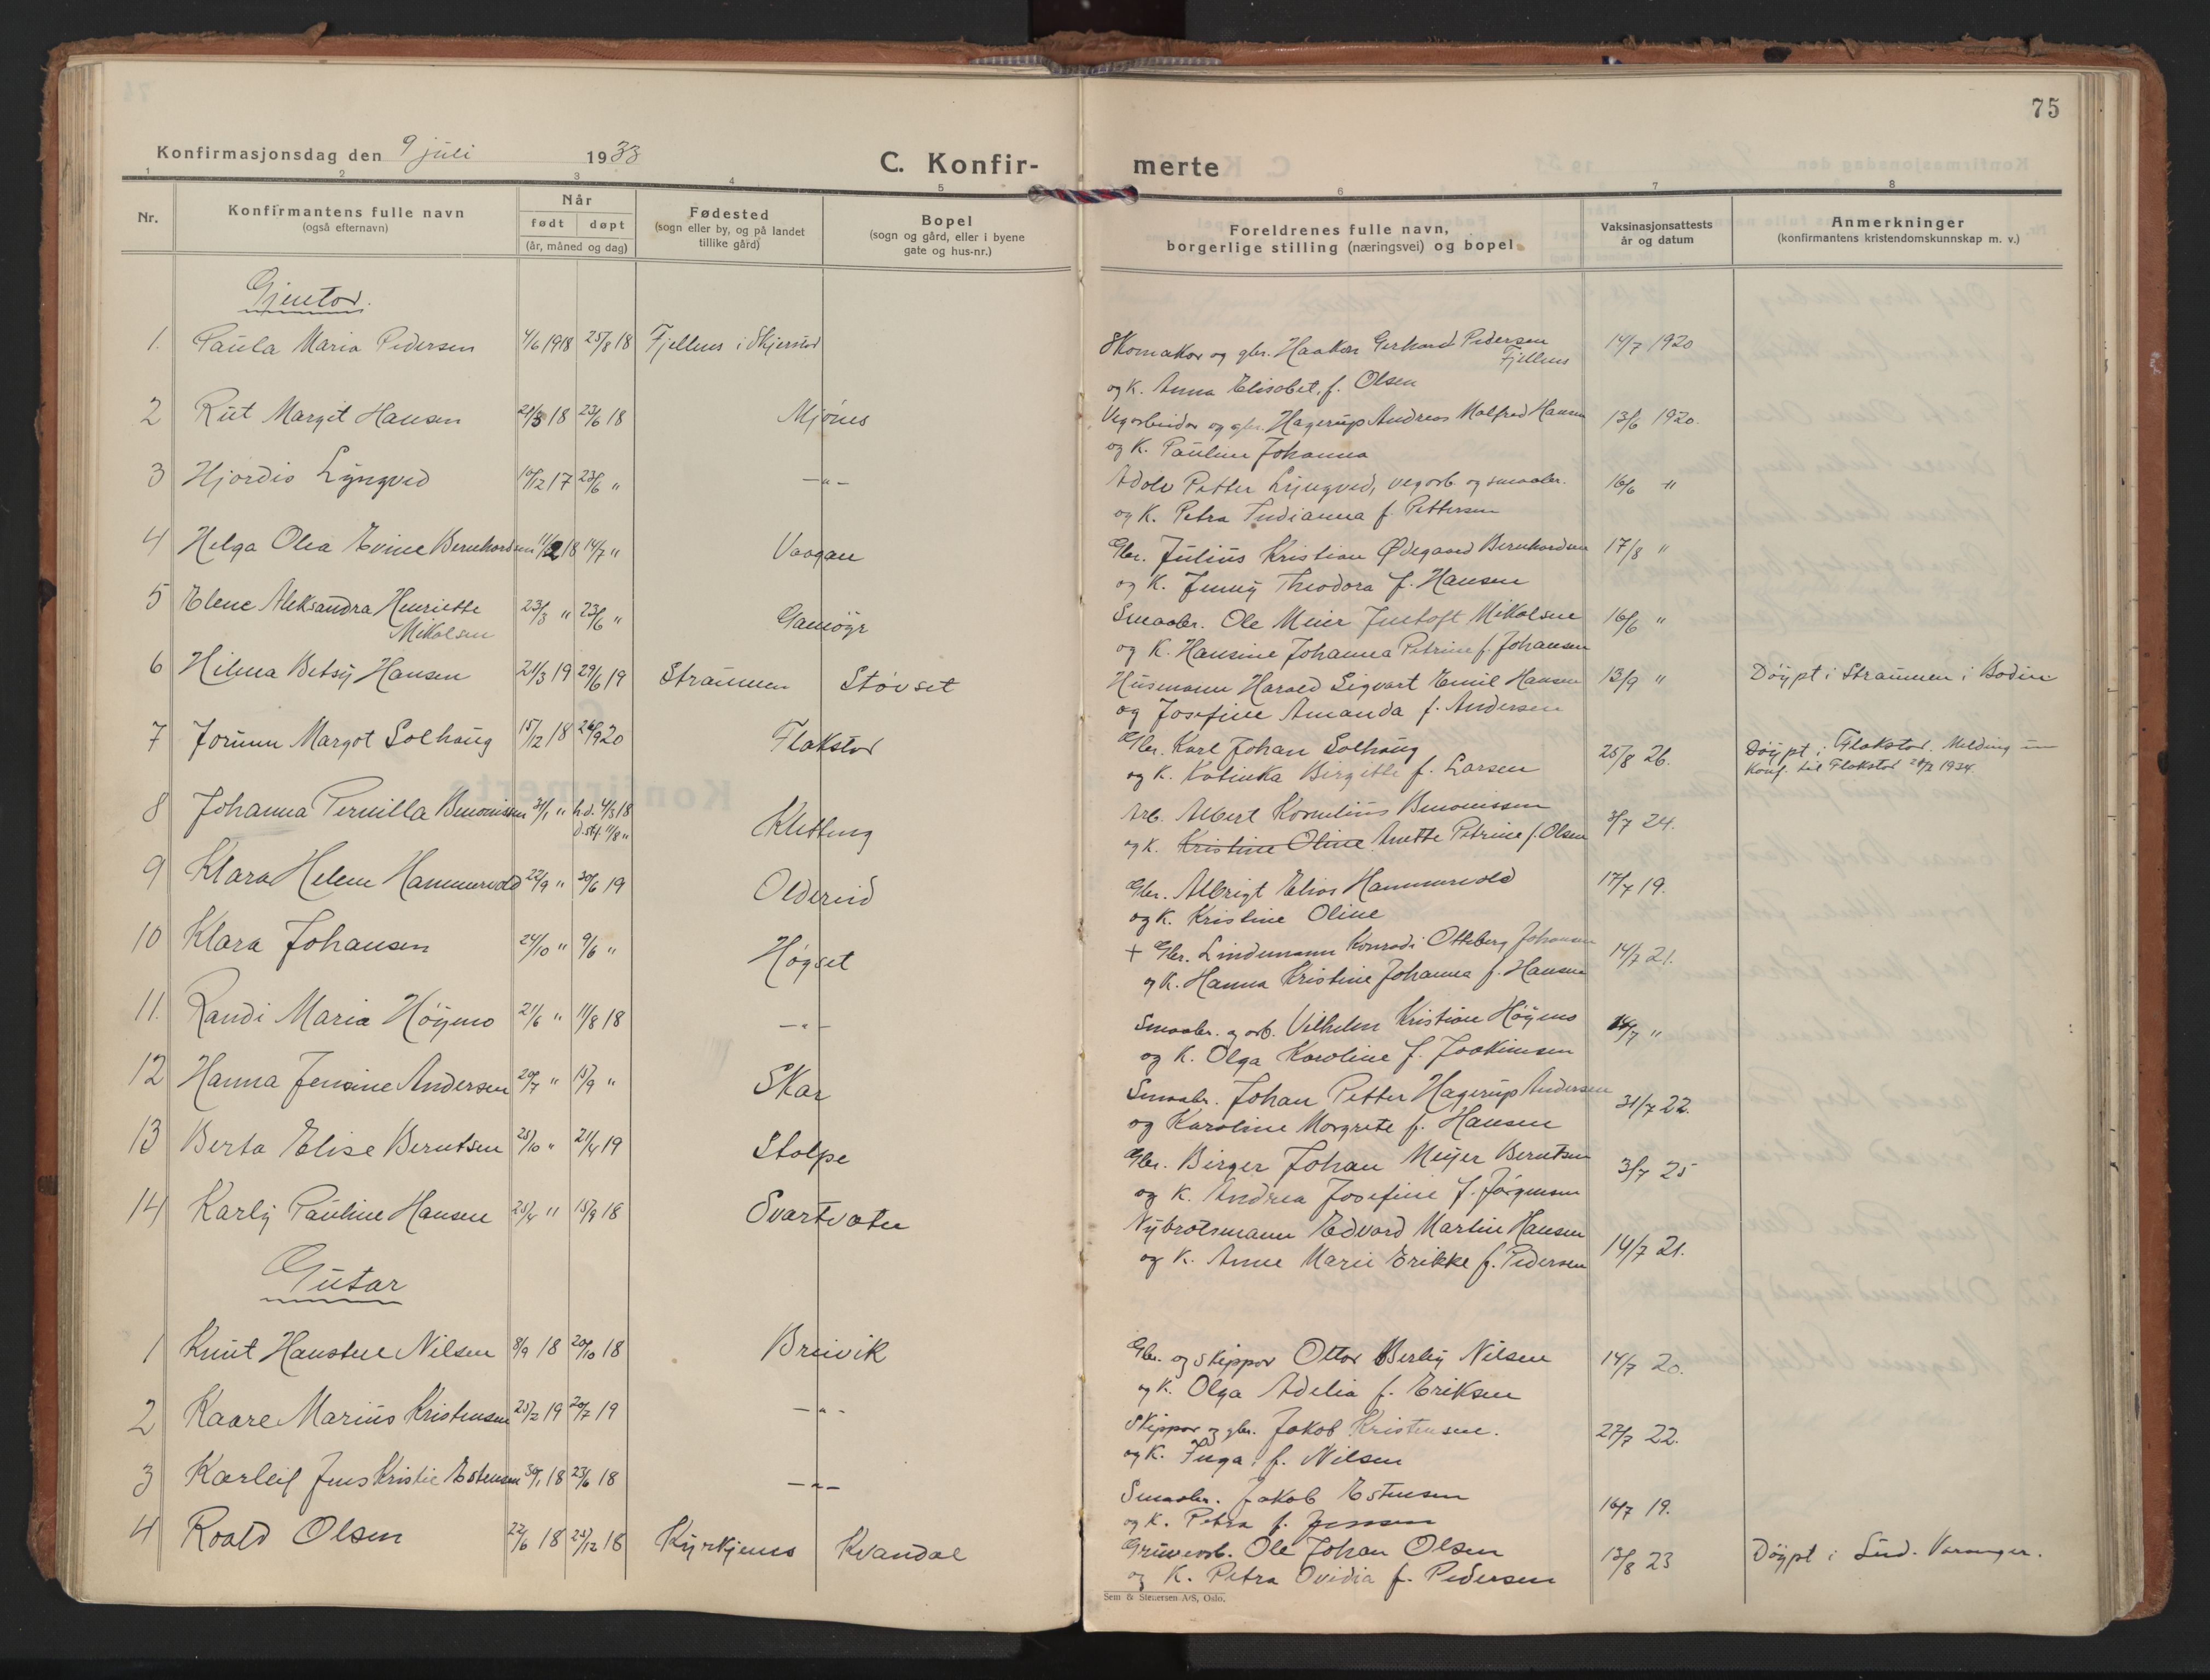 75
Konfirmasjonsdag den 9 juli 1933
C. Konfir- merte
1 2 3 4 5 6 7 8
Nr.
Konfirmantens fulle navn
(også efternavn)
Når
født døpt
(år, måned og dag)
Fødested
(sogn eller by, og på landet
tillike gård)
Bopel
(sogn og gård, eller i byene
gate og hus-nr.)
Foreldrenes fulle navn,
borgerlige stilling (næringsvei) og bopel
Vaksinasjonsattests
år og datum
Anmerkninger
(konfirmantens kristendomskunnskap m. v.)
Gjentor.
1. Paula Maria Pedersen 4/6 1918 25/8 18 Fjellnes i Skjerstad
Skomakar og gbr. Haakon Gerhard Pedersen Fjellnes 14/7 1920
og K. Anna Elisabet, f. Olsen
2 Rut Margit Hansen 21/3 18 23/6 18 Mjönes
Vegarbeider og gbr. Hagerup Andreas Malfred Hansen 13/6 1920.
og K. Pauline Johanna
3 Hjordis Lyngved 10/12 17 23/6 " —"—
Adolv Petter Lyngved, vegarb og smaabr. 16/6 "
og K. Petra Indianna f. Pettersen
4 Helga Olea Evine Bernhardsen 11/2 18 14/7 " Vaagan
Gbr. Julius Kristian Ødegaard Bernhardsen 17/8 "
og K. Jenny Theodora f. Hansen
5 Elene Aleksandra Henriette
Mikalsen 23/3 " 23/6 " Gamöyr
Smaabr. Ole Meier Justoft Mikalsen 16/6 "
og K. Hansine Johanna Petrine f. Johansen
6 Hilma Betsy Hansen 21/3 19 29/6 19 Straumen Stövset
Husmann Harald Sigvart Emil Hansen 13/9 " Döypt i Straumen i Bodin
og Josefine Amanda f. Andersen
7 Jorunn Margot Solhaug 15/12 18 26/9 20 Flakstad
Gbr. Karl Johan Solhaug 25/8 26. Döypt i Flakstad. Melding um
og K. Katinka Birgitte f. Larsen
Konf. til Flakstad 20/2 1934.
8 Johanna Pernilla Benonissen 31/1 " h.d. 4/3 18
d. stf. 11/8 " Kletteng
Arb. Albert Kornelius Benonissen 3/7 24.
og K. Kristine Oline Anette Petrine f. Olsen
9 Klara Helene Hammervold 22/9 " 30/6 19 Oldereid
Gbr. Albrigt Elias Hammervold 17/7 19.
og K. Kristine Oline
10 Klara Johansen 24/10 " 9/6 " Högset
+ Gbr. Lindemann Konradi Otteberg Johansen 14/7 21.
og K. Hanna Kristine Johanna f. Hansen
11. Randi Maria Höymo 21/6 " 11/8 18 —"—
Smaabr. og arb. Vilhelm Kristian Höymo 14/7 "
og K. Olga Karoline f. Joakimsen
12 Hanna Jensine Andersen 20/7 " 15/9 " Skar
Smaabr. Johan Petter Hagerup Andersen 31/7 22.
og Karoline Margrete f. Hansen
13 Berta Elise Berntsen 25/10 " 21/4 19 Stolpe
Gbr. Birger Johan Meyer Berntsen 3/7 25
og K. Andrea Josefine f. Jörgensen
14 Karly Pauline Hansen 25/4 " 15/9 18 Svartvatn
Nybrotsmann Edvard Martin Hansen 14/7 21.
og K. Anne Marie Erikke f. Pedersen
Gutar
1 Knut Haustue Nilsen 8/9 18 20/10 18 Breivik
Gbr. og skippar Ottar Berly Nilsen 14/7 20.
og K. Olga Adelia f. Eriksen
2 Kaare Marius Kristensen 25/2 19 20/7 19 —"—
Skippar og gbr. Jakob Kristensen. 27/7 22.
og K. Inga f. Nilsen
3 Karleif Jens Kristie Estensen 30/1 18 23/6 18 —"—
Smaabr. Jakob Estensen 16/7 19.
og K. Petra f. Jensen
4 Roald Olsen 22/6 18 25/12 18 Kyrkjenes Kvandal
Gruvearb. Ole Johan Olsen 13/8 23 Döypt i Süd. Varanger.
og K. Petra Ovidia f. Pedersen
Sem & Stenersen A/S, Oslo.